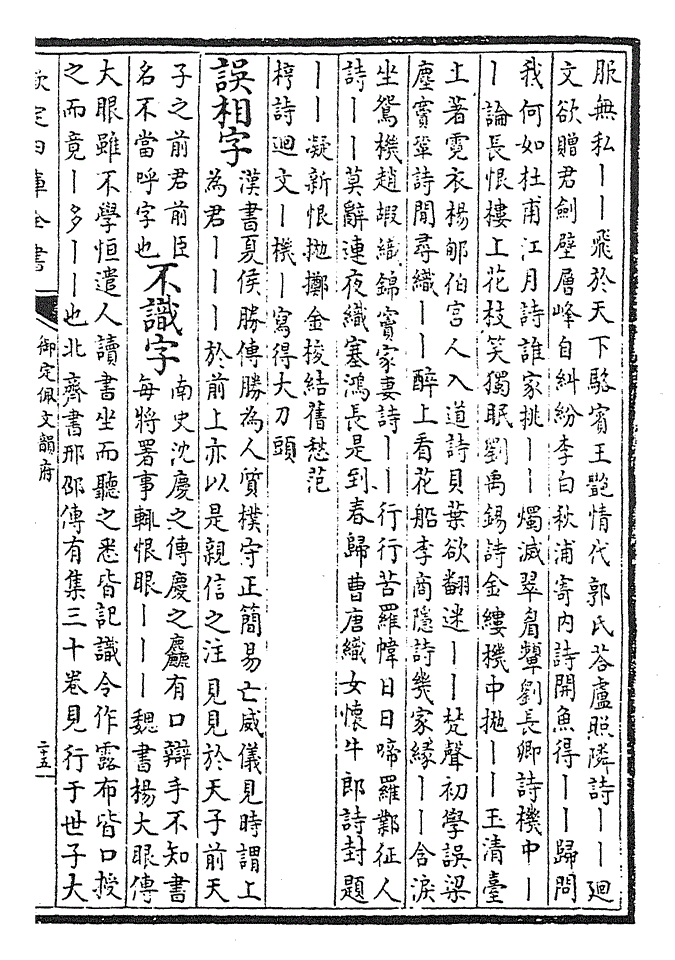 服無私丨丨飛於天下駱賓王艷情代郭氏荅盧照隣詩丨丨廻
文欲贈君劍壁層峰自糾紛李白秋浦寄内詩開魚得丨丨歸問
我何如杜甫江月詩誰家挑丨丨燭滅翠眉顰劉長卿詩機中丨
丨論長恨樓上花枝笑獨眠劉禹錫詩金縷機中抛丨丨玉清臺
上著霓衣楊郇伯宫人入道詩貝葉欲翻迷丨丨梵聲初學誤梁
塵竇鞏詩閒尋織丨丨醉上看花船李商隱詩幾家緣丨丨含淚
坐鴛機趙嘏織錦竇家妻詩丨丨行行苦羅幃日日啼羅鄴征人
詩丨丨莫辭連夜織塞鴻長是到春歸曹唐織女懷牛郎詩封題
丨丨凝新恨抛擲金梭結舊愁范
梈詩廻文丨機丨寫得大刀頭
誤相字
漢書夏侯勝傳勝為人質樸守正簡易亡威儀見時謂上
為君丨丨丨於前上亦以是親信之注見見於天子前天
子之前君前臣
名不當呼字也
不識字
南史沈慶之傳慶之麤有口辯手不知書
每將署事輒恨眼丨丨丨魏書楊大眼傳
大眼雖不學恒遣人讀書坐而聽之悉皆記識令作露布皆口授
之而竟丨多丨丨也北齊書邢邵傳有集三十卷見行于世子大
欽定四庫全書
御定佩文韻府
二十五